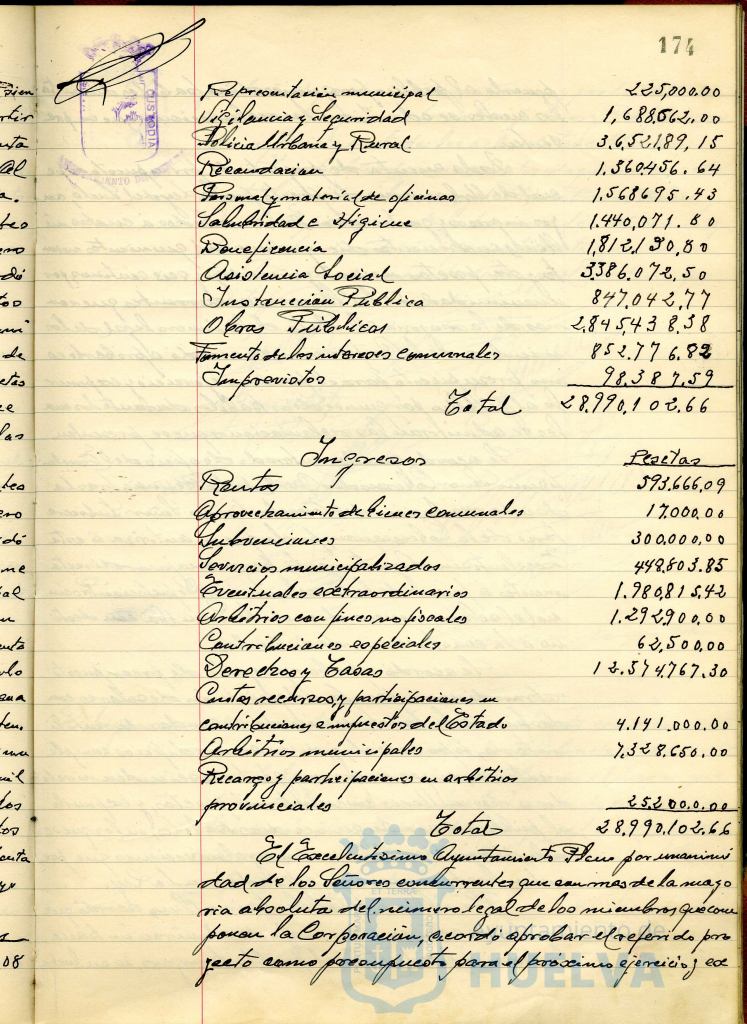 174
CUSTODIA
Representación municipal 225,000.00
Vigilancia y Seguridad 1,688562.00
Policia Urbana y Rural 3.652189,15
Recaudacion 1.360456.64
Personal y material de oficinas 1.568695.43
Salubridad e Higiene 1.440,071.80
Beneficencia 1,812130,80
Asistencia Social 3386.072,50
Instrucción Publica 847.042,77
Obras Públicas 2.845,438,38
Fomento de los intereses comunales 852.776.82
Imprevistos 98.387,59
Total 28.990,102.66
Ingresos Pesetas
Rentas 593.666,09
Aprovechamiento de bienes comunales 17.000.00
Subvenciones 300.000,00
Servicios municipalizados 448.803.85
Eventuales extraordinarios 1.980,815,42
Arbitrios con fines no fiscales 1.292900.00
Contribuciones especiales 62,500,00
Derechos y Tasas 12.374,767.30
recursos y participaciones en
contribuciones e impuestos del Estado 4.141.000.00
Arbitrios municipales 7,328.650,00
Recargo y participaciones en arbitrios
provinciales 252000.00
Total 28.990,102.66
El Excelentisimo Ayuntamiento Pleno por unanimi
dad de los Señores concurrentes que son mas de la mayo
ria absoluta del número legal de los miembros que com
ponen la Corporación, acordó aprobar el referido pro
yecto como presupuesto para el próximo ejercicio; ex
Ayuntamiento de
HUELVA